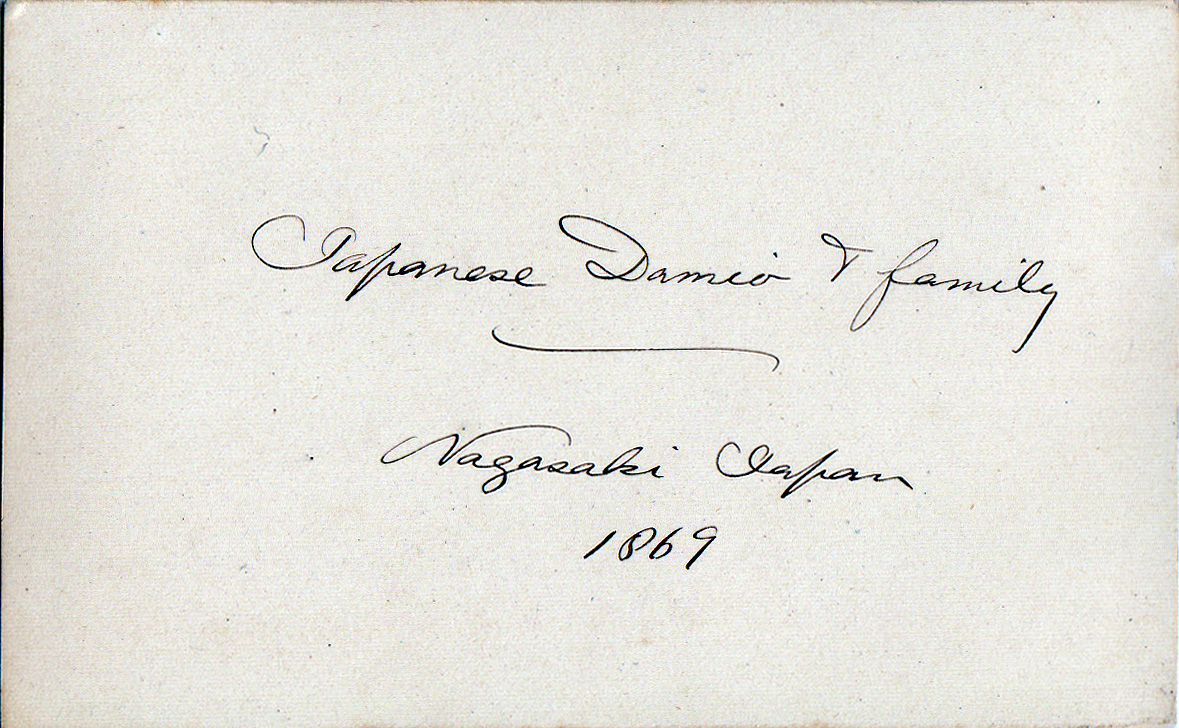 Japanese Damio & family
Nagasaki Japan
1869